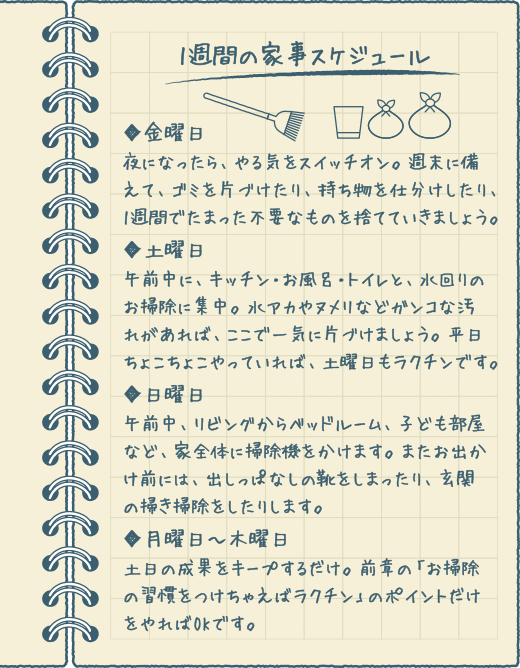 1週間の家事スケジュール
◆金曜日
夜になったら、やる気をスイッチオン。週末に備
えて、ゴミを片づけたり、持ち物を仕分けしたり、
1週間でたまった不要なものを捨てていきましょう。
◆土曜日
午前中に、キッチン・お風呂・トイレと、水回りの
お掃除に集中。水アカやヌメリなどガンコな汚
れがあれば、ここで一気に片づけましょう。平日
ちょこちょこやっていれば、土曜日もラクチンです。
◆日曜日
午前中、リビングからベッドルーム、子ども部屋
など、家全体に掃除機をかけます。またお出か
け前には、出しっぱなしの靴をしまったり、玄関
の掃き掃除をしたりします。
◆月曜日〜木曜日
土日の成果をキープするだけ。前章の「お掃除
の習慣をつけちゃえばラクチン」のポイントだけ
をやればOkです。